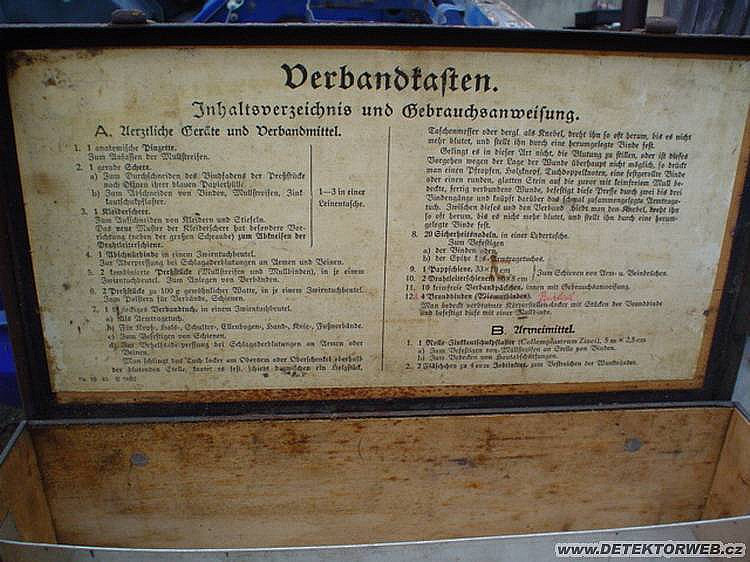 Verbandkasten.
Inhaltsverzeichnis und Gebrauchsanweisung.
A. Aerztliche Geräte und Verbandmittel.
1. 1 anatomische Pinzette.
Zum Anfassen der Mullstreifen.
2. 1 gerade Schere.
a) Zum Durchschneiden des Bindfadens der Preßstücke
nach Öffnen ihrer blauen Papierhülle
b) Zum Abschneiden von Binden, Mullstreifen, Zink-
kautschukpflaster.
3. 1 Kleiderschere.
Zum Aufschneiden von Kleidern und Stiefeln.
Das neue Muster der Kleiderschere hat besondere Vor-
richtung (neben der großen Schraube) zum Abkneifen der
Drahtleiterschiene.
1—3 in einer
Leinentasche.
4. 1 Abschnürbinde in einem Zwirntuchbeutel.
Zur Umpressung bei Schlagaderblutungen an Armen und Beinen.
5. 2 kombinierte Preßstücke (Mullstreifen und Mullbinden), in je einem
Zwirntuchbeutel. Zum Anlegen von Verbänden.
6. 2 Preßstücke zu 100 g gewöhnlicher Watte, in je einem Zwirntuchbeutel.
Zum Polstern für Verbände, Schienen.
7. 1 dreieckiges Verbandtuch, in einem Zwirntuchbeutel.
a) Als Armtragetuch.
b) Für Kopf-, Hals-, Schulter-, Ellenbogen-, Hand-, Knie-, Fußverbände.
c) Zum Befestigen von Schienen.
d) Zur Behelfsabpressung bei Schlagaderblutungen an Armen oder
Beinen.
Man schlingt das Tuch locker um Oberarm oder Oberschenkel oberhalb
der blutenden Stelle, knotet es fest, schiebt daumendick ein Holzstück,
Taschenmesser oder dergl. als Knebel, dreht ihn so oft herum, bis es nicht
mehr blutet, und stellt ihn durch eine herumgelegte Binde fest.
Gelingt es in dieser Art nicht, die Blutung zu stillen, oder ist dieses
Vorgehen wegen der Lage der Wunde überhaupt nicht möglich, so drückt
man einen Pfropfen, Holzknopf, Tuchdoppelknoten, eine festgerollte Binde
oder einen runden, glatten Stein auf die zuvor mit keimfreiem Mull be-
deckte, fertig verbundene Wunde, befestigt diese Presse durch zwei bis drei
Bindengänge und knüpft darüber das schmal zusammengelegte Armtrage-
tuch. Zwischen dieses und den Verband schiebt man den Knebel, dreht ihn
so oft herum, bis es nicht mehr blutet, und stellt ihn durch eine herum-
gelegte Binde fest.
8. 20 Sicherheitsnadeln, in einer Ledertasche.
Zum Befestigen
a) der Binden oder
b) der Spitze des Armtragetuches.
9. 1 Pappschiene, 33× cm
10. 2 Drahtleiterschienen ×8 cm
Zum Schienen von Arm- u. Beinbrüchen.
11. 10 keimfreie Verbandpäckchen, innen mit Gebrauchsanweisung.
12. 4 Brandbinden (Wismutbinden).
Man bedeckt verbrannte Körperstellen locker mit Stücken der Brandbinde
und befestigt diese mit einer Mullbinde.
B. Arzneimittel.
1. 1 Rolle Zinkkautschukpflaster (Collemplastrum Zinci), 5 m × 2,5 cm
a) Zum Befestigen von Mullstreifen an Stelle von Binden.
b) Zum Bedecken von Hautabschürfungen.
2. 2 Fläschchen zu 4 ccm Jodtinktur, zum Bestreichen der Wundränder.
www.DETEKTORWEB.cz
© DETEKTORWEB.cz